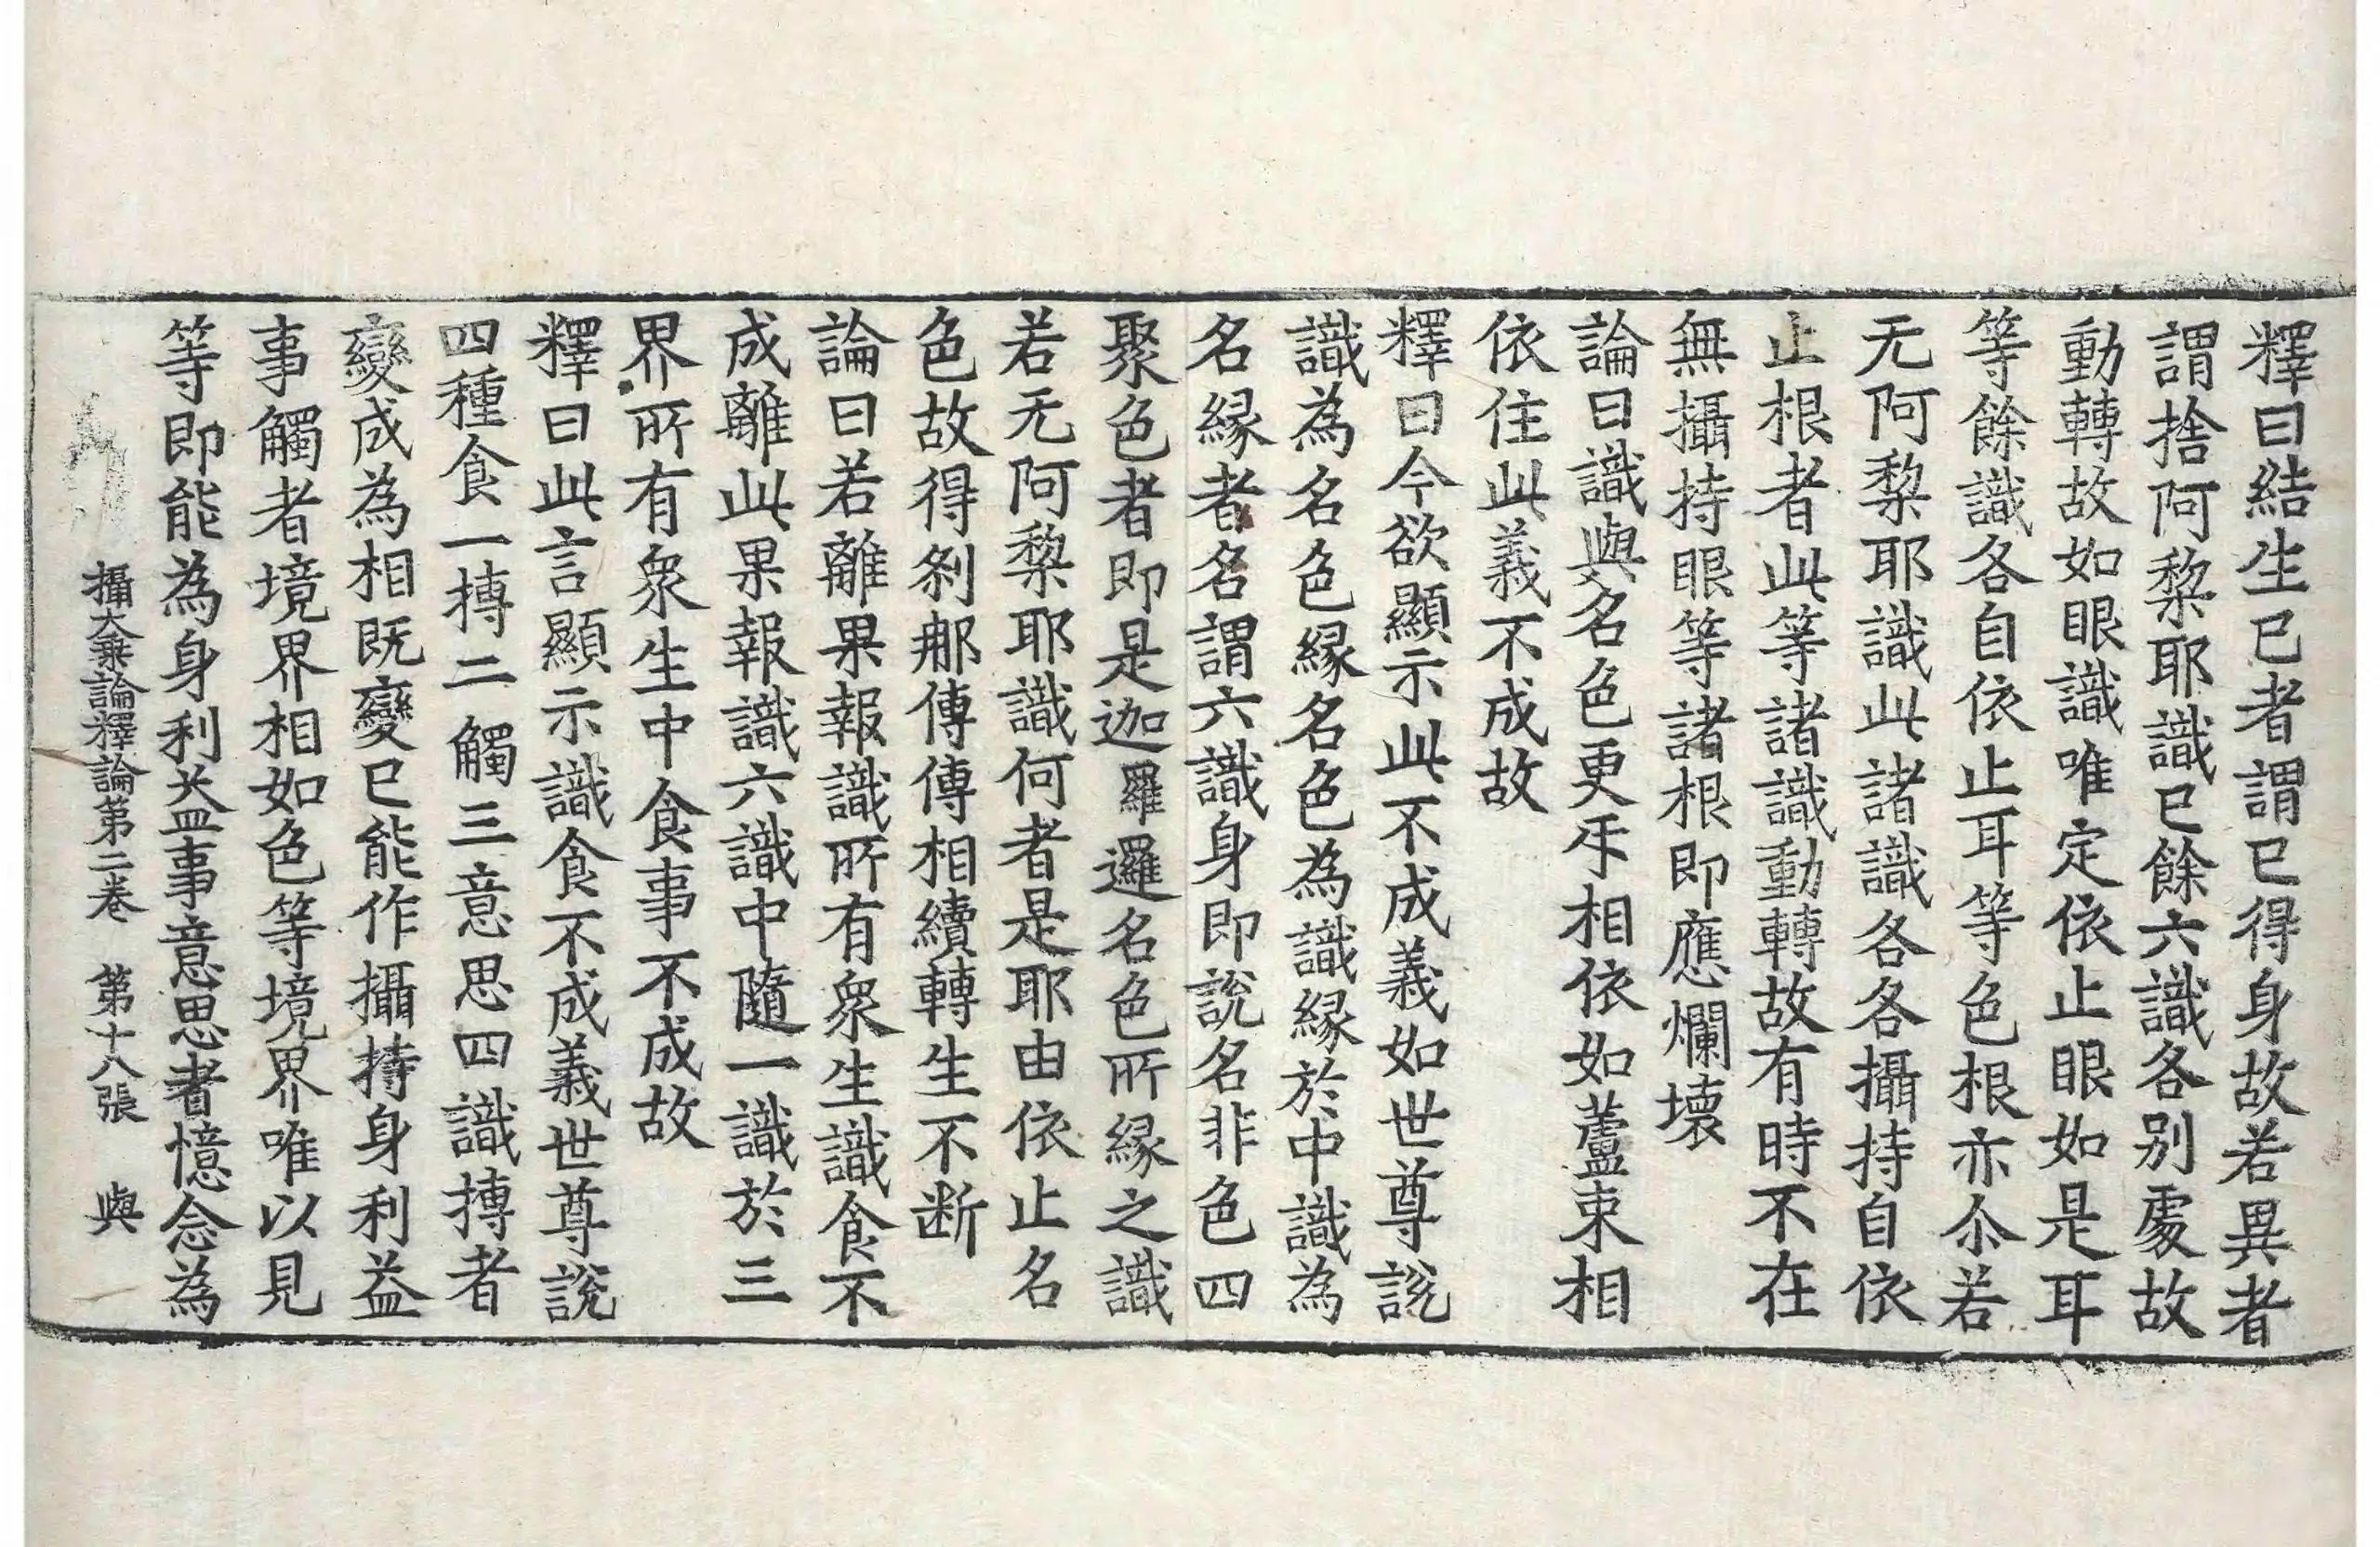 釋曰結生已者謂已得身故若異者
謂捨阿梨耶識已餘六識各别處故
動轉故如眼識唯定依止眼如是耳
等餘識各自依止耳等色根亦尒若
无阿梨耶識此諸識各各攝持自依
止根者此等諸識動轉故有時不在
無攝持眼等諸根即應爛壞
論曰識與名色更㸦相依如蘆束相
依住此義不成故
釋曰今欲顯示此不成義如世尊說
識為名色緣名色為識緣於中識為
名緣者名謂六識身即說名非色四
聚色者即是迦羅邏名色所緣之識
若无阿梨耶識何者是耶由依止名
色故得刹那傳傳相續轉生不断
論曰若離果報識所有衆生識食不
成離此果報識六識中隨一識於三
界所有衆生中食事不成故
釋曰此言顯示識食不成義世尊說
四種食一摶二觸三意思四識摶者
變成為相既變已能作攝持身利益
事觸者境界相如色等境界唯以見
等即能為身利益事意思者憶念為
攝大乗論釋論第二卷　第十八張　與